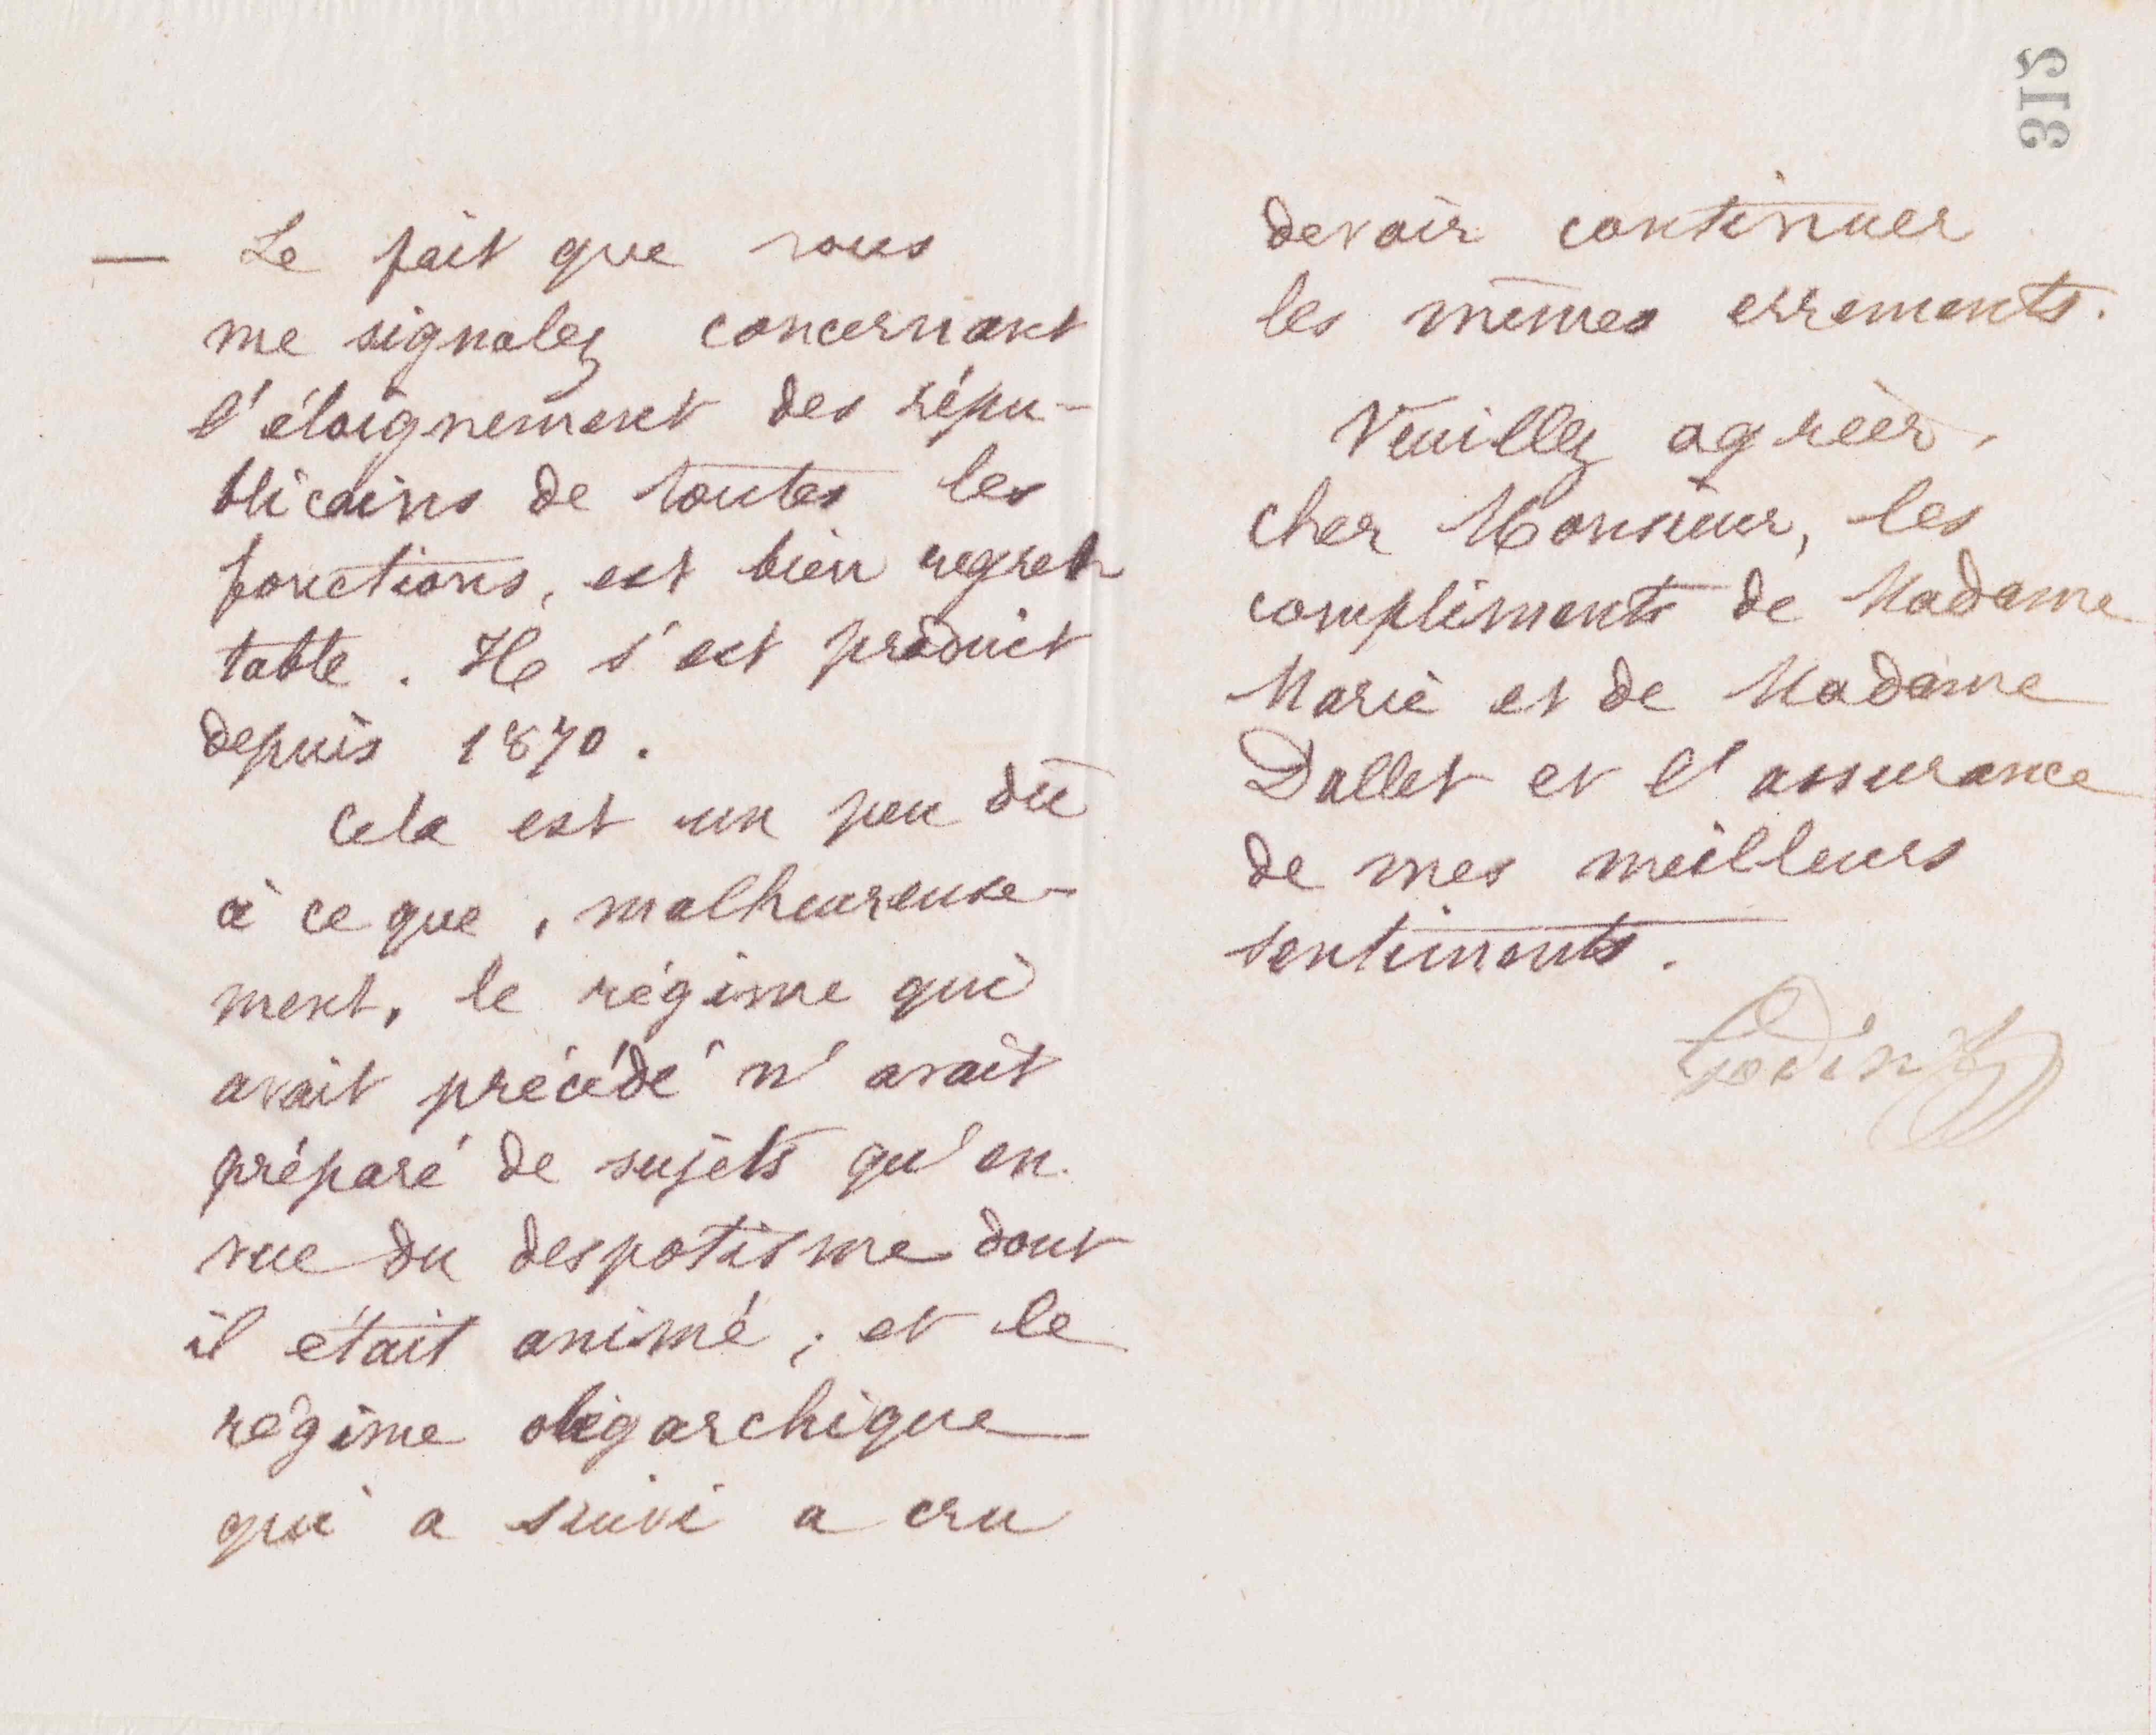 — Le fait que vous
me signalez concernant
l'éloignement des répu-
blicains de toutes les
fonctions, est bien regret-
table. Il s'est produit
depuis 1870.
Cela est un peu dû
à ce que, malheureuse-
ment, le régime qui
avait précédé n'avait
préparé de sujets qu'en
vue du despotisme dont
il était animé ; et le
régime oligarchique
qui a suivi a cru
318
devoir continuer
les mêmes errements.
Veuillez agréer,
cher Monsieur, les
compliments de Madame
Marie et de Madame
Dallet et l'assurance
de mes meilleurs
sentiments.
Godin